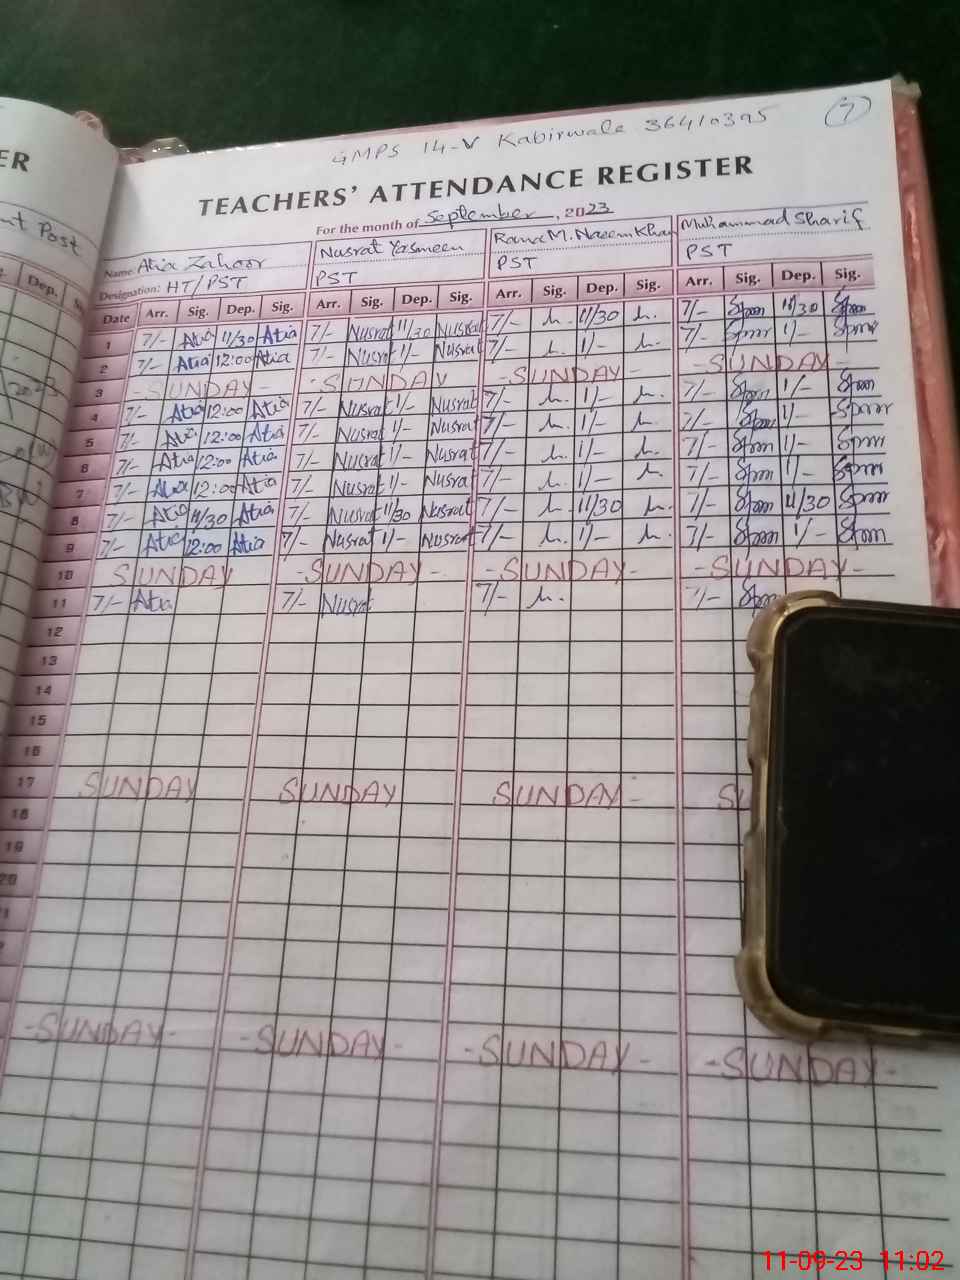 GMPS 14-V Kabirwala 36410395 7
TEACHERS' ATTENDANCE REGISTER
For the month of September, 2023
ER
nt Post
Name: Atia Zahoor Nusrat Yasmeen Rana M. Naeem Khan Muhammad Sharif
Designation: HT/PST PST PST PST
Dep. Date Arr. Sig. Dep. Sig. Arr. Sig. Dep. Sig. Arr. Sig. Dep. Sig. Arr. Sig. Dep. Sig.
1 7/- Atia 11/30 Atia 7/- Nusrat 11/30 Nusrat 7/- 11/30 7/- 11/30
2 7/- Atia 12:00 Atia 7/- Nusrat 1/- Nusrat 7/- 1/- 7/- 1/-
3 SUNDAY - SUNDAY - SUNDAY - - SUNDAY -
4 7/- Atia 12:00 Atia 7/- Nusrat 1/- Nusrat 7/- 1/- 7/- 1/-
5 7/- Atia 12:00 Atia 7/- Nusrat 1/- Nusrat 7/- 1/- 7/- 1/-
6 7/- Atia 12:00 Atia 7/- Nusrat 1/- Nusrat 7/- 1/- 7/- 1/-
7 7/- Atia 12:00 Atia 7/- Nusrat 1/- Nusrat 7/- 1/- 7/- 1/-
8 7/- Atia 11/30 Atia 7/- Nusrat 11/30 Nusrat 7/- 11/30 7/- 11/30
9 7/- Atia 12:00 Atia 7/- Nusrat 1/- Nusrat 7/- 1/- 7/- 1/-
10 SUNDAY - SUNDAY - - SUNDAY - - SUNDAY -
11 7/- Atia 7/- Nusrat 7/- 7/-
12
13
14
15
16
17 SUNDAY SUNDAY SUNDAY - SU
18
19
20
- SUNDAY - - SUNDAY - - SUNDAY - - SUNDAY -
11-09-23 11:02